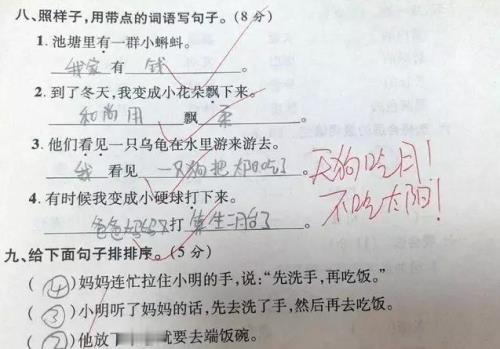 八、照样子，用带点的词语写句子。（8 分）
1. 池塘里有一群小蝌蚪。
我家 有 钱 。
2. 到了冬天，我变成小花朵飘下来。
和尚用 飘 柔 。
3. 他们看见一只乌龟在水里游来游去。
我 看见 一只狗把太阳吃了 。
天狗吃月！
不吃太阳！
4. 有时候我变成小硬球打下来。
爸爸妈妈又打 算生二胎了 。
九、给下面句子排排序。（5 分）
（ ④ ）妈妈连忙拉住小明的手，说：“先洗手，再吃饭。”
（ ③ ）小明听了妈妈的话，先去洗了手，然后再去吃饭。
（ ② ）他放 就要去端饭碗。